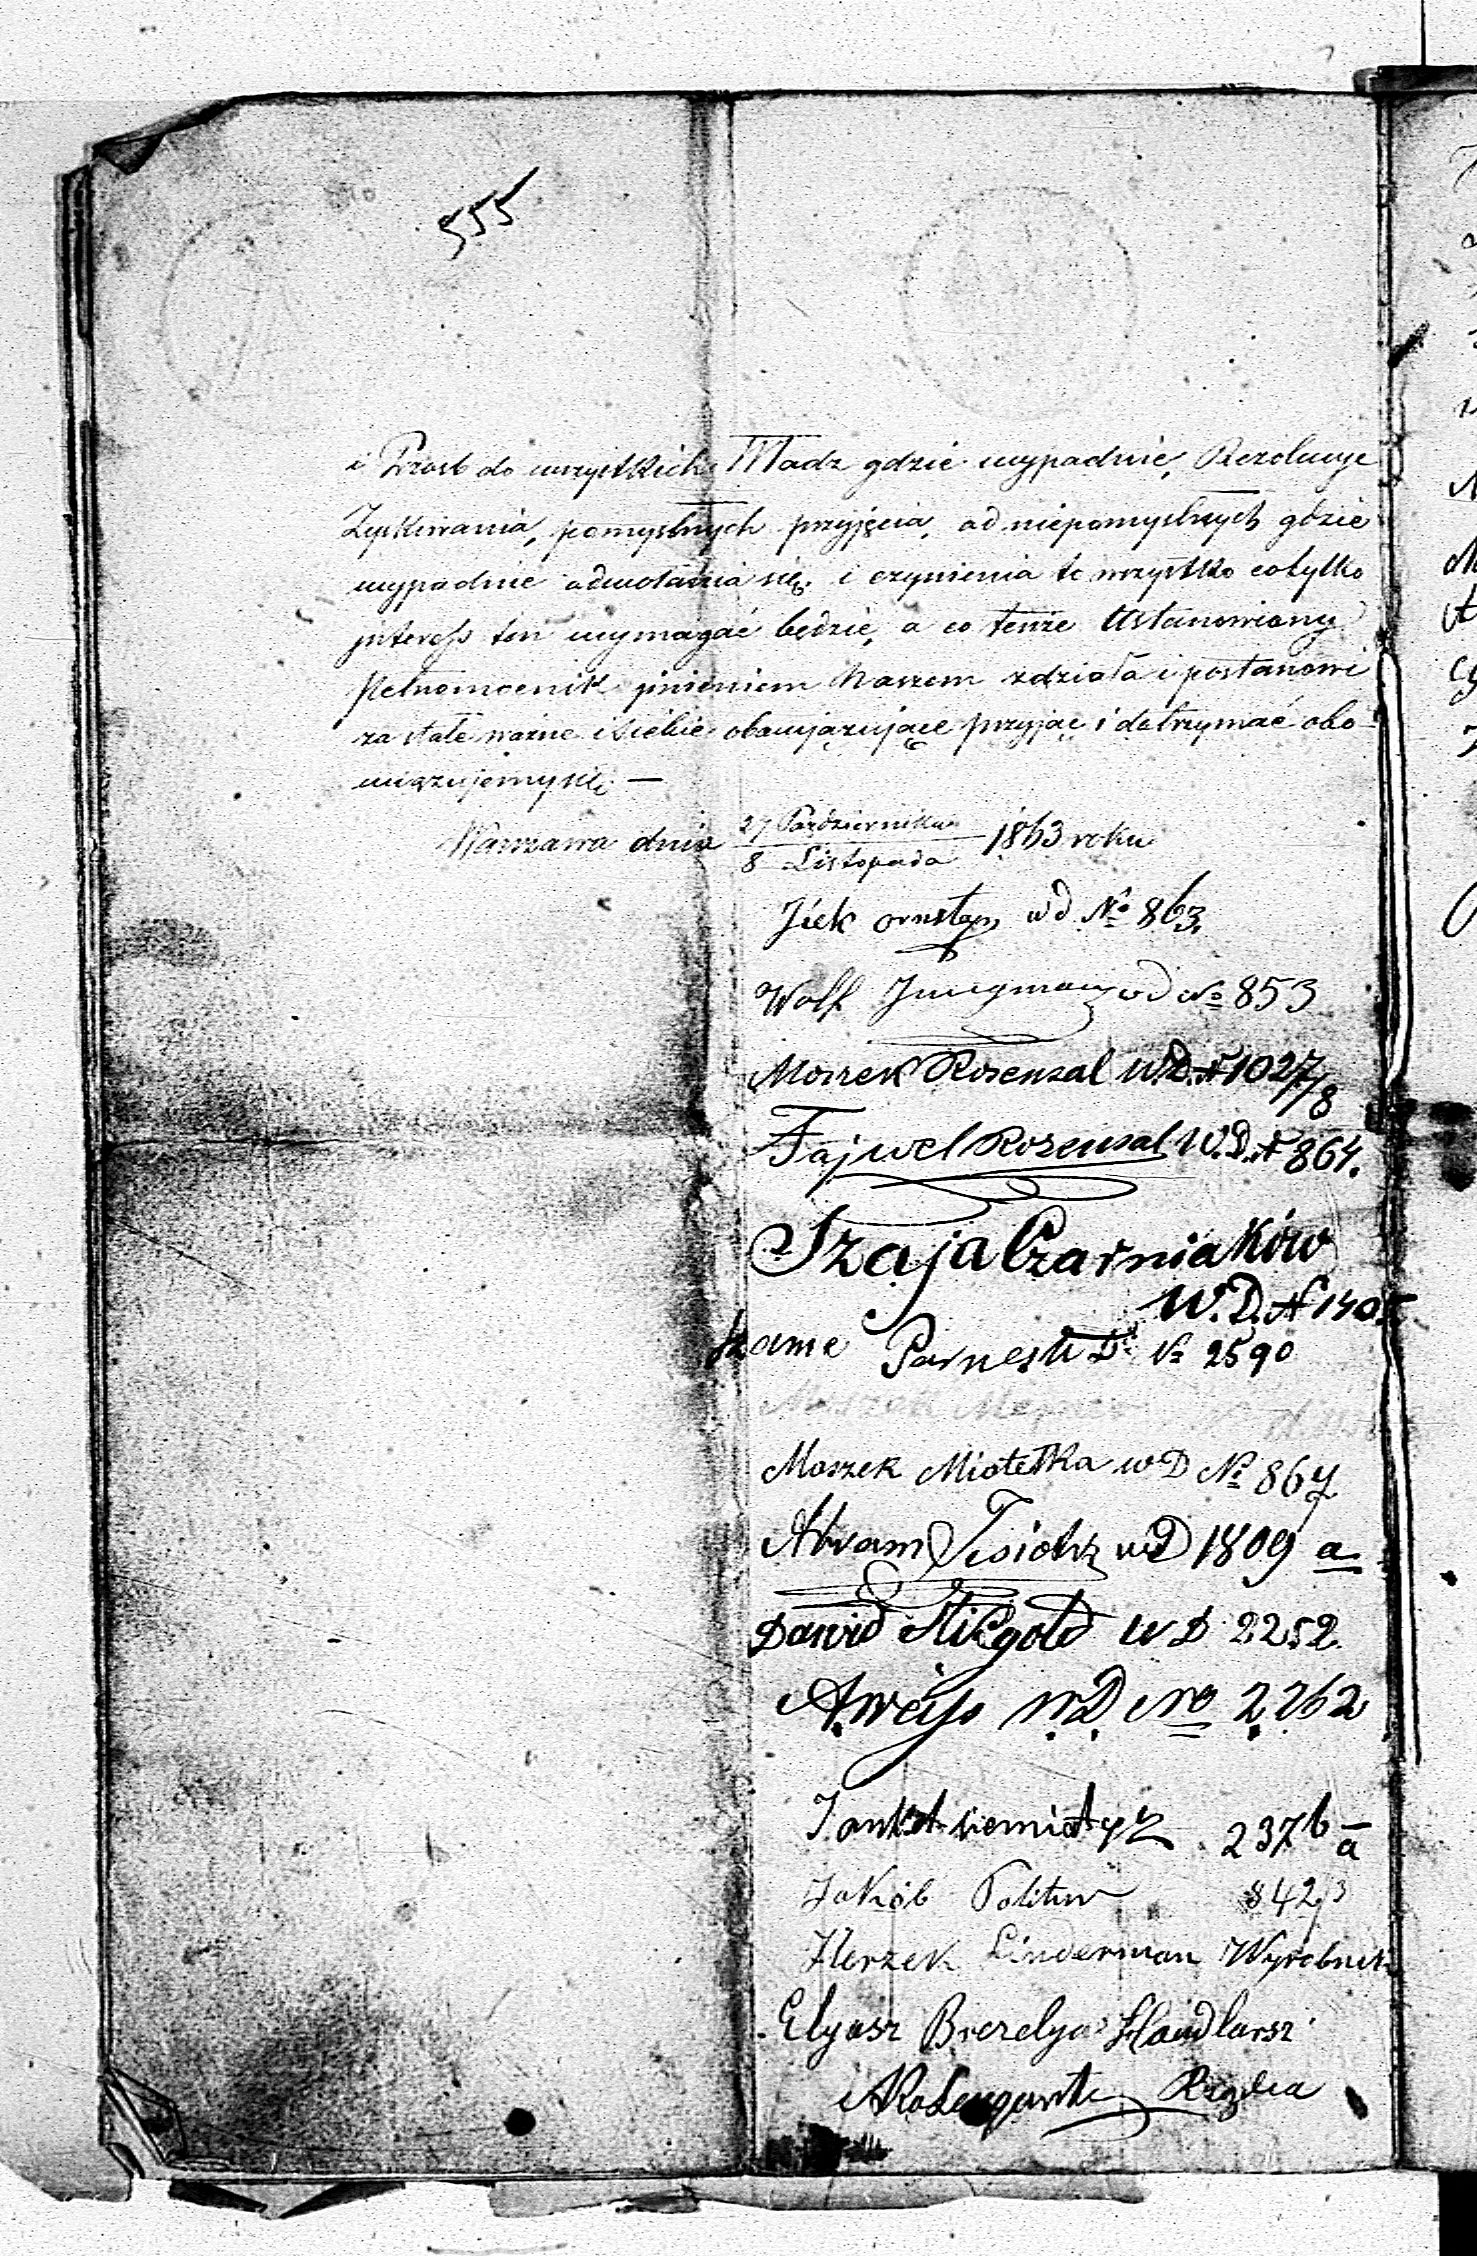 555
i Prosb do wszystkich Władz gdzie wypadnie, Rezolucye
Zyskiwania, pomyslnych przyjęcia, od niepomyslnych gdzie
wypadnie odwołania się, i czynienia to wszystko cotylko
interess ten wymagać będzie, a co tenże Ustanowiony
Pełnomocnik imieniem Naszem zdziała i postanowi
za stałe ważne i siebie obowiązujące przyjąć i dotrzymać obo-
wiązujemy się —
Warszawa dnia 27 Października / 8 Listopada 1863 roku
Jick w d No 863.
Wolf Jungman w d No 853
Moszek Rosenzal W.D. N 1027/8
Fajwel Rozensal W.D. N 864.
Szaja Czarniaków
W.D. N
Parnes D. No 2590
Moszek
Moszek Miotełka w D No 867
Abram wD 1809 a
Dawid Stikgold W D 2252
AWeiss W.D. No 2262
237b a
Jakób Politur 842/3
Herzek Linderman Wyrobnik
Elyasz Brezelya Handlarz